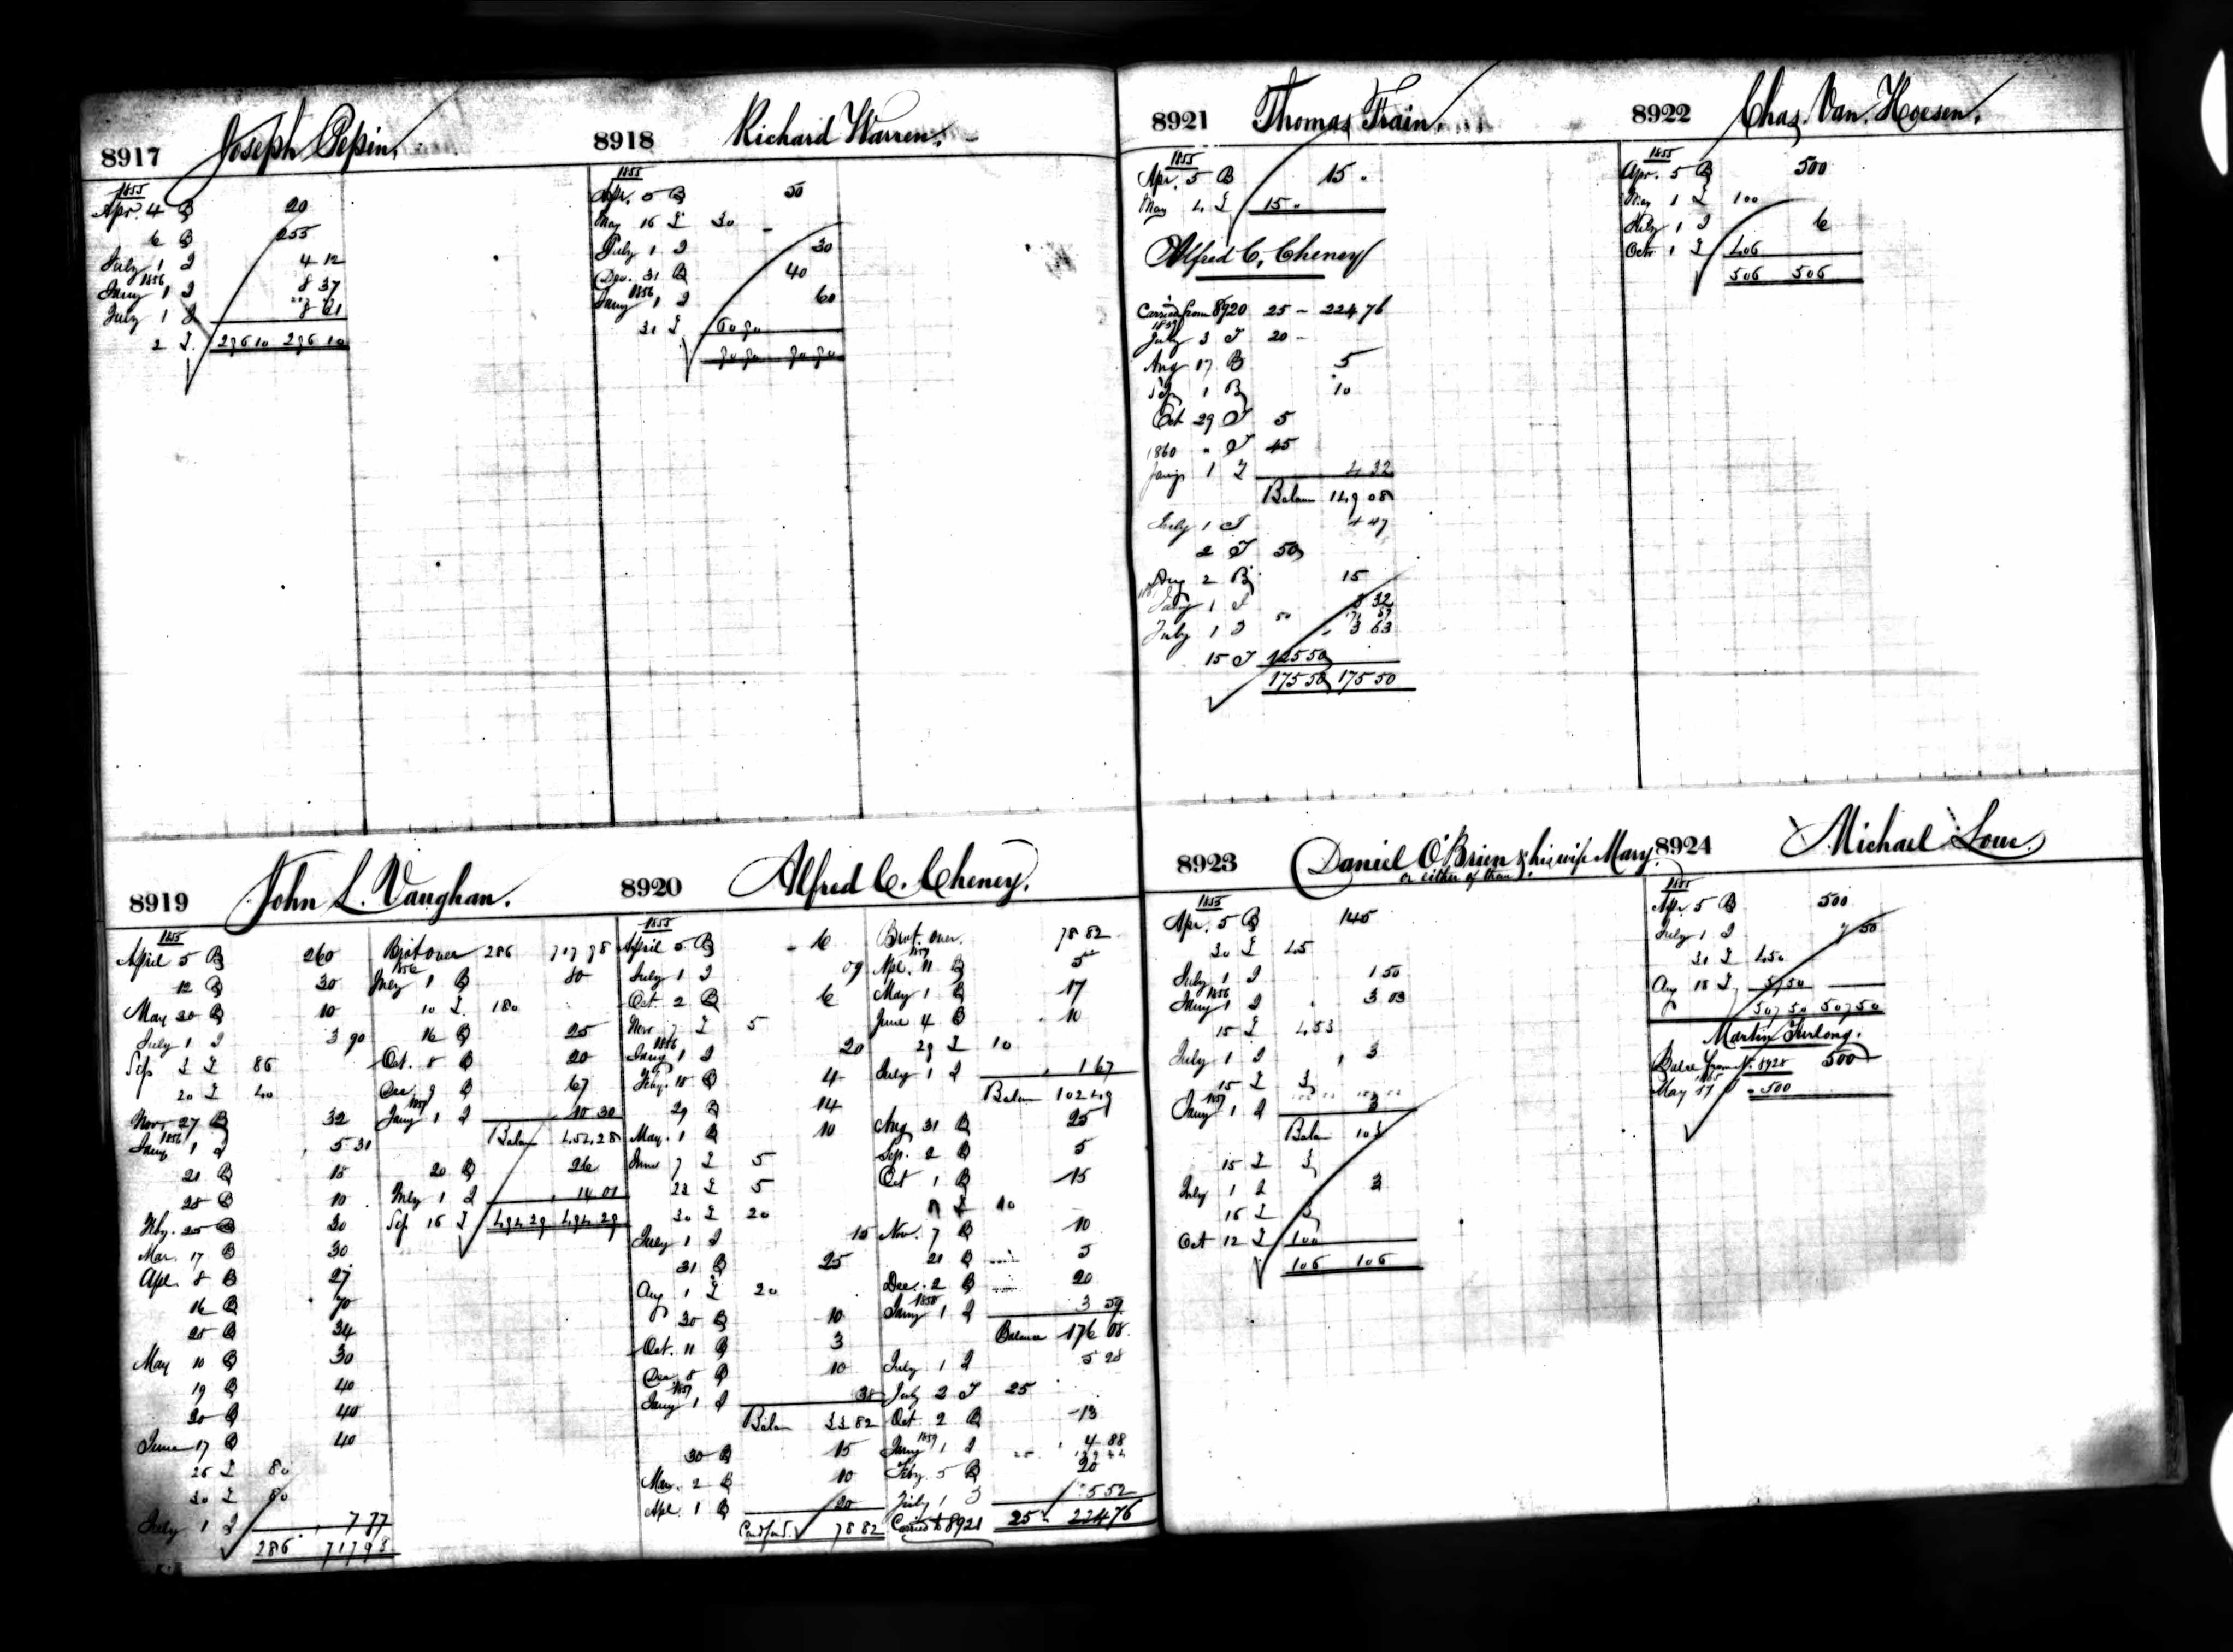 8917 Joseph Pepin.
1855
Apr. 4 B 20
6 B 255
July 1 I 4 12
1856
Jany 1 I 8 37
July 1 I 8 61
2 I. 296 10 296 10
8918 Richard Warren.
1855
Apr. 5 B 50
May 16 I 30
July 1 I 30
Dec. 31 B 40
1856
Jany 1 I 60
31 I 60 90
90 90 90 90
8919 John L. Vaughan.
1855
April 5 B 260
12 B 30
May 30 B 10
July 1 I 3 90
Sep 3 I 86
20 I 40
Nov 27 B 32
1856
Jany 1 I 5 31
21 B 18
28 B 10
Feby. 25 B 30
Mar. 17 B 30
Apl. 8 B 27
16 B 70
28 B 34
May 10 B 30
19 B 40
20 B 40
June 17 B 40
26 I 80
30 I 80
July 1 I 7 77
286 717 98
Brot over 286 717 98
1856
July 1 B 80
10 I. 180
16 B 25
Oct. 8 B 20
Dec. 9 B 67
1857
Jany 1 I 10 30
Balan 454 28
20 B 26
July 1 I 14 01
Sep 16 I 494 29 494 29
8920 Alfred C. Cheney.
1855
April 5 B 6
July 1 I 09
Oct 2 B 6
Nov 7 I 5
1856
Jany 1 I 20
Feby. 18 B 4
29 B 14
May. 1 B 10
June 7 I 5
23 I 5
30 I 20
July 1 I 15
31 B 25
Aug 1 I 20
30 B 10
Oct. 11 B 3
Dec. 8 B 10
1857
Jany 1 I 38
Balan 33 82
30 B 15
Mar. 2 B 10
Apl. 1 B 20
Card ford. 78 82
Brot. over. 78 82
1857
Apl. 11 B 5
May 1 B 17
June 4 B 10
29 I 10
July 1 I 1 67
Balan 102 49
Aug 31 B 25
Sep. 2 B 5
Oct 1 B 15
I 10
Nov. 7 B 10
21 B 5
Dec. 2 B 20
1858
Jany 1 I 3 59
Balance 176 08
July 1 I 5 28
July 2 I 25
Oct. 2 B 13
1859
Jany 1 I 4 88
Feby. 5 B 20
July 1 I 5 52
Carried to 8921 25 224 76
8921 Thomas Train.
1855
Apr. 5 B 15
May 4 I 15
Alfred C. Cheney
Carried from 8920 25 - 224 76
1859
July 3 I 20 -
Aug 17 B 5
Sep 1 B 10
Oct 29 I 5
1860 " I 45
Jany 1 I 4 32
Balan 149 08
July 1 I 4 47
2 I 50
Aug 2 B 15
Jany 1 I 3 32
July 1 I 3 63
15 I 125 50
175 50 175 50
8922 Chas. Van. Hoesen.
1855
Apr. 5 B 500
May 1 I 100
July 1 I 6
Octr 1 I 406
506 506
8923 Daniel O'Brien & his wife Mary.
or either of them
1855
Apr. 5 B 145
30 I 45
July 1 I 1 50
1856
Jany 1 I 3 03
15 I 4 53
July 1 I 3
15 I 3
1857
Jany 1 I 3
Balan 103
15 I 3
July 1 I 3
16 I 3
Oct 12 I 100
106 106
8924 Michael
1855
Apr. 5 B 500
July 1 I 7 50
31 I 450
Aug 18 I 57 50
507 50 507 50
Martin Furlong.
Balce from No. 8928 500
May 17 500